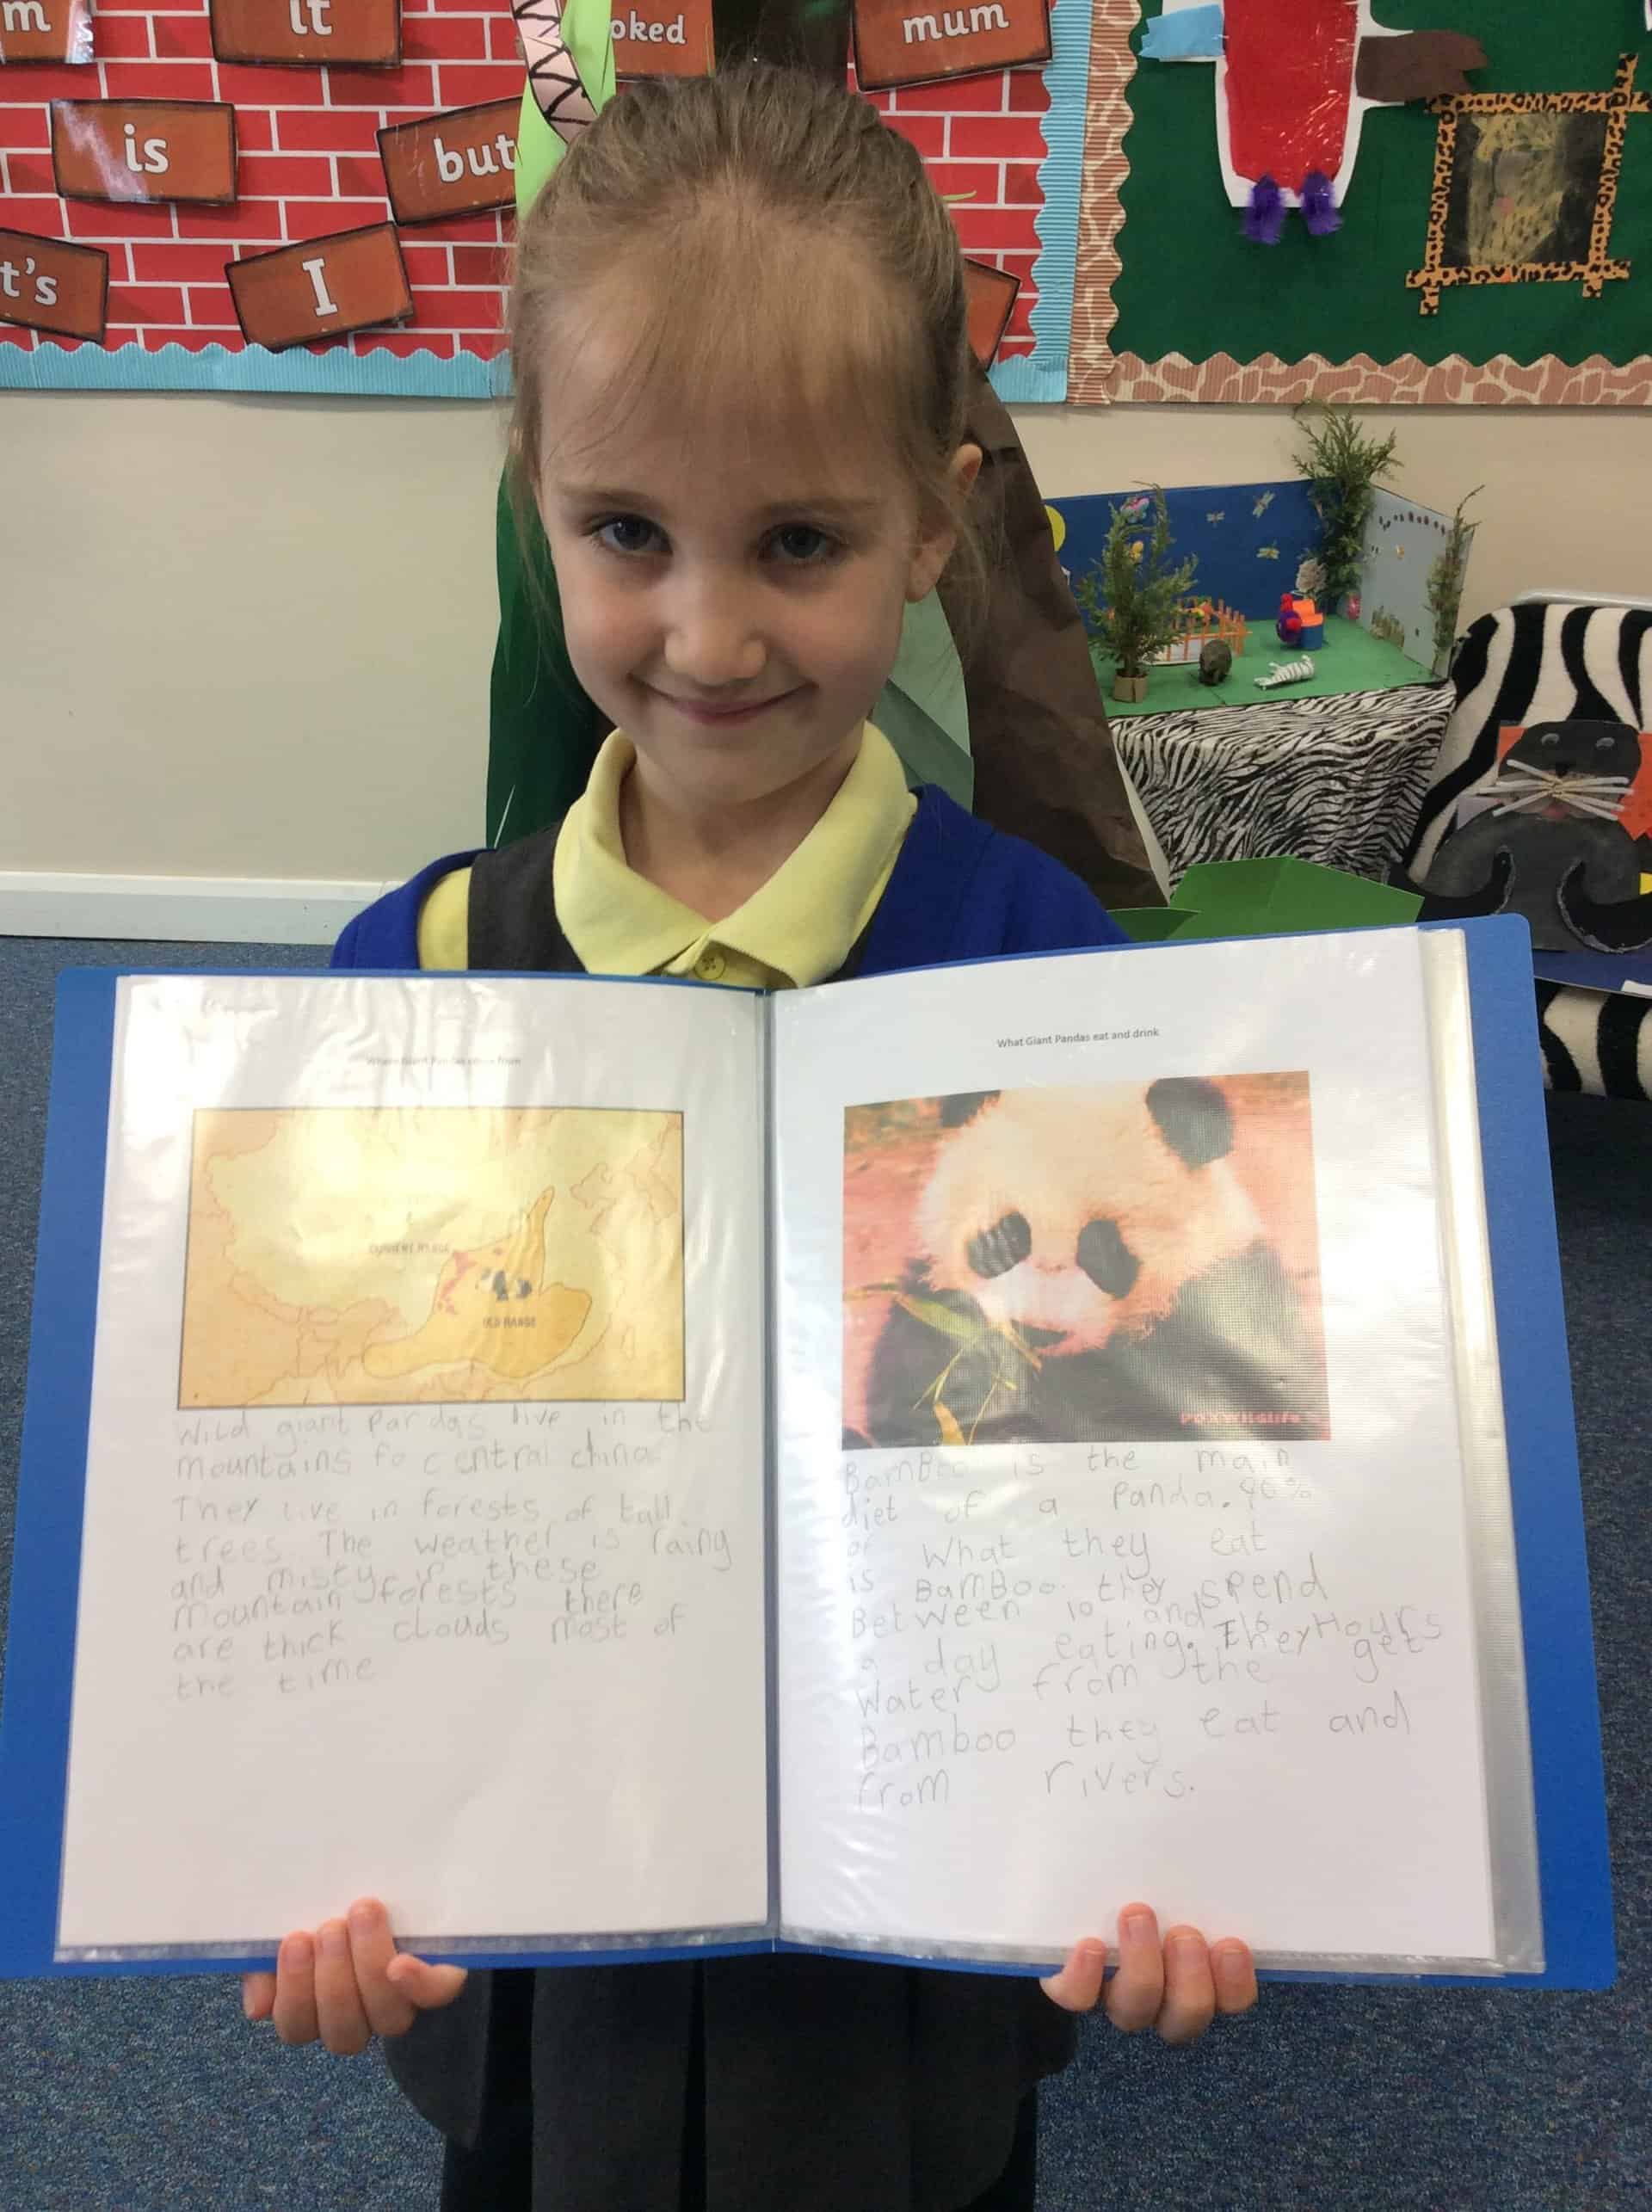 m
it
oked
mum
is
but
t's
I
Where Giant Pandas come from
CURRENT RANGE
OLD RANGE
Wild giant pandas live in the
mountains fo central china.
They live in forests of tall
trees. The weather is rainy
and misty in these
mountain forests there
are thick clouds most of
the time
What Giant Pandas eat and drink
FOX Wildlife
BamBoo is the main
diet of a panda. 90%
of What they eat
is BamBoo. they spend
Between 10 and 16 Hours
a day eating. They get
Water from the
Bamboo they eat and
from rivers.